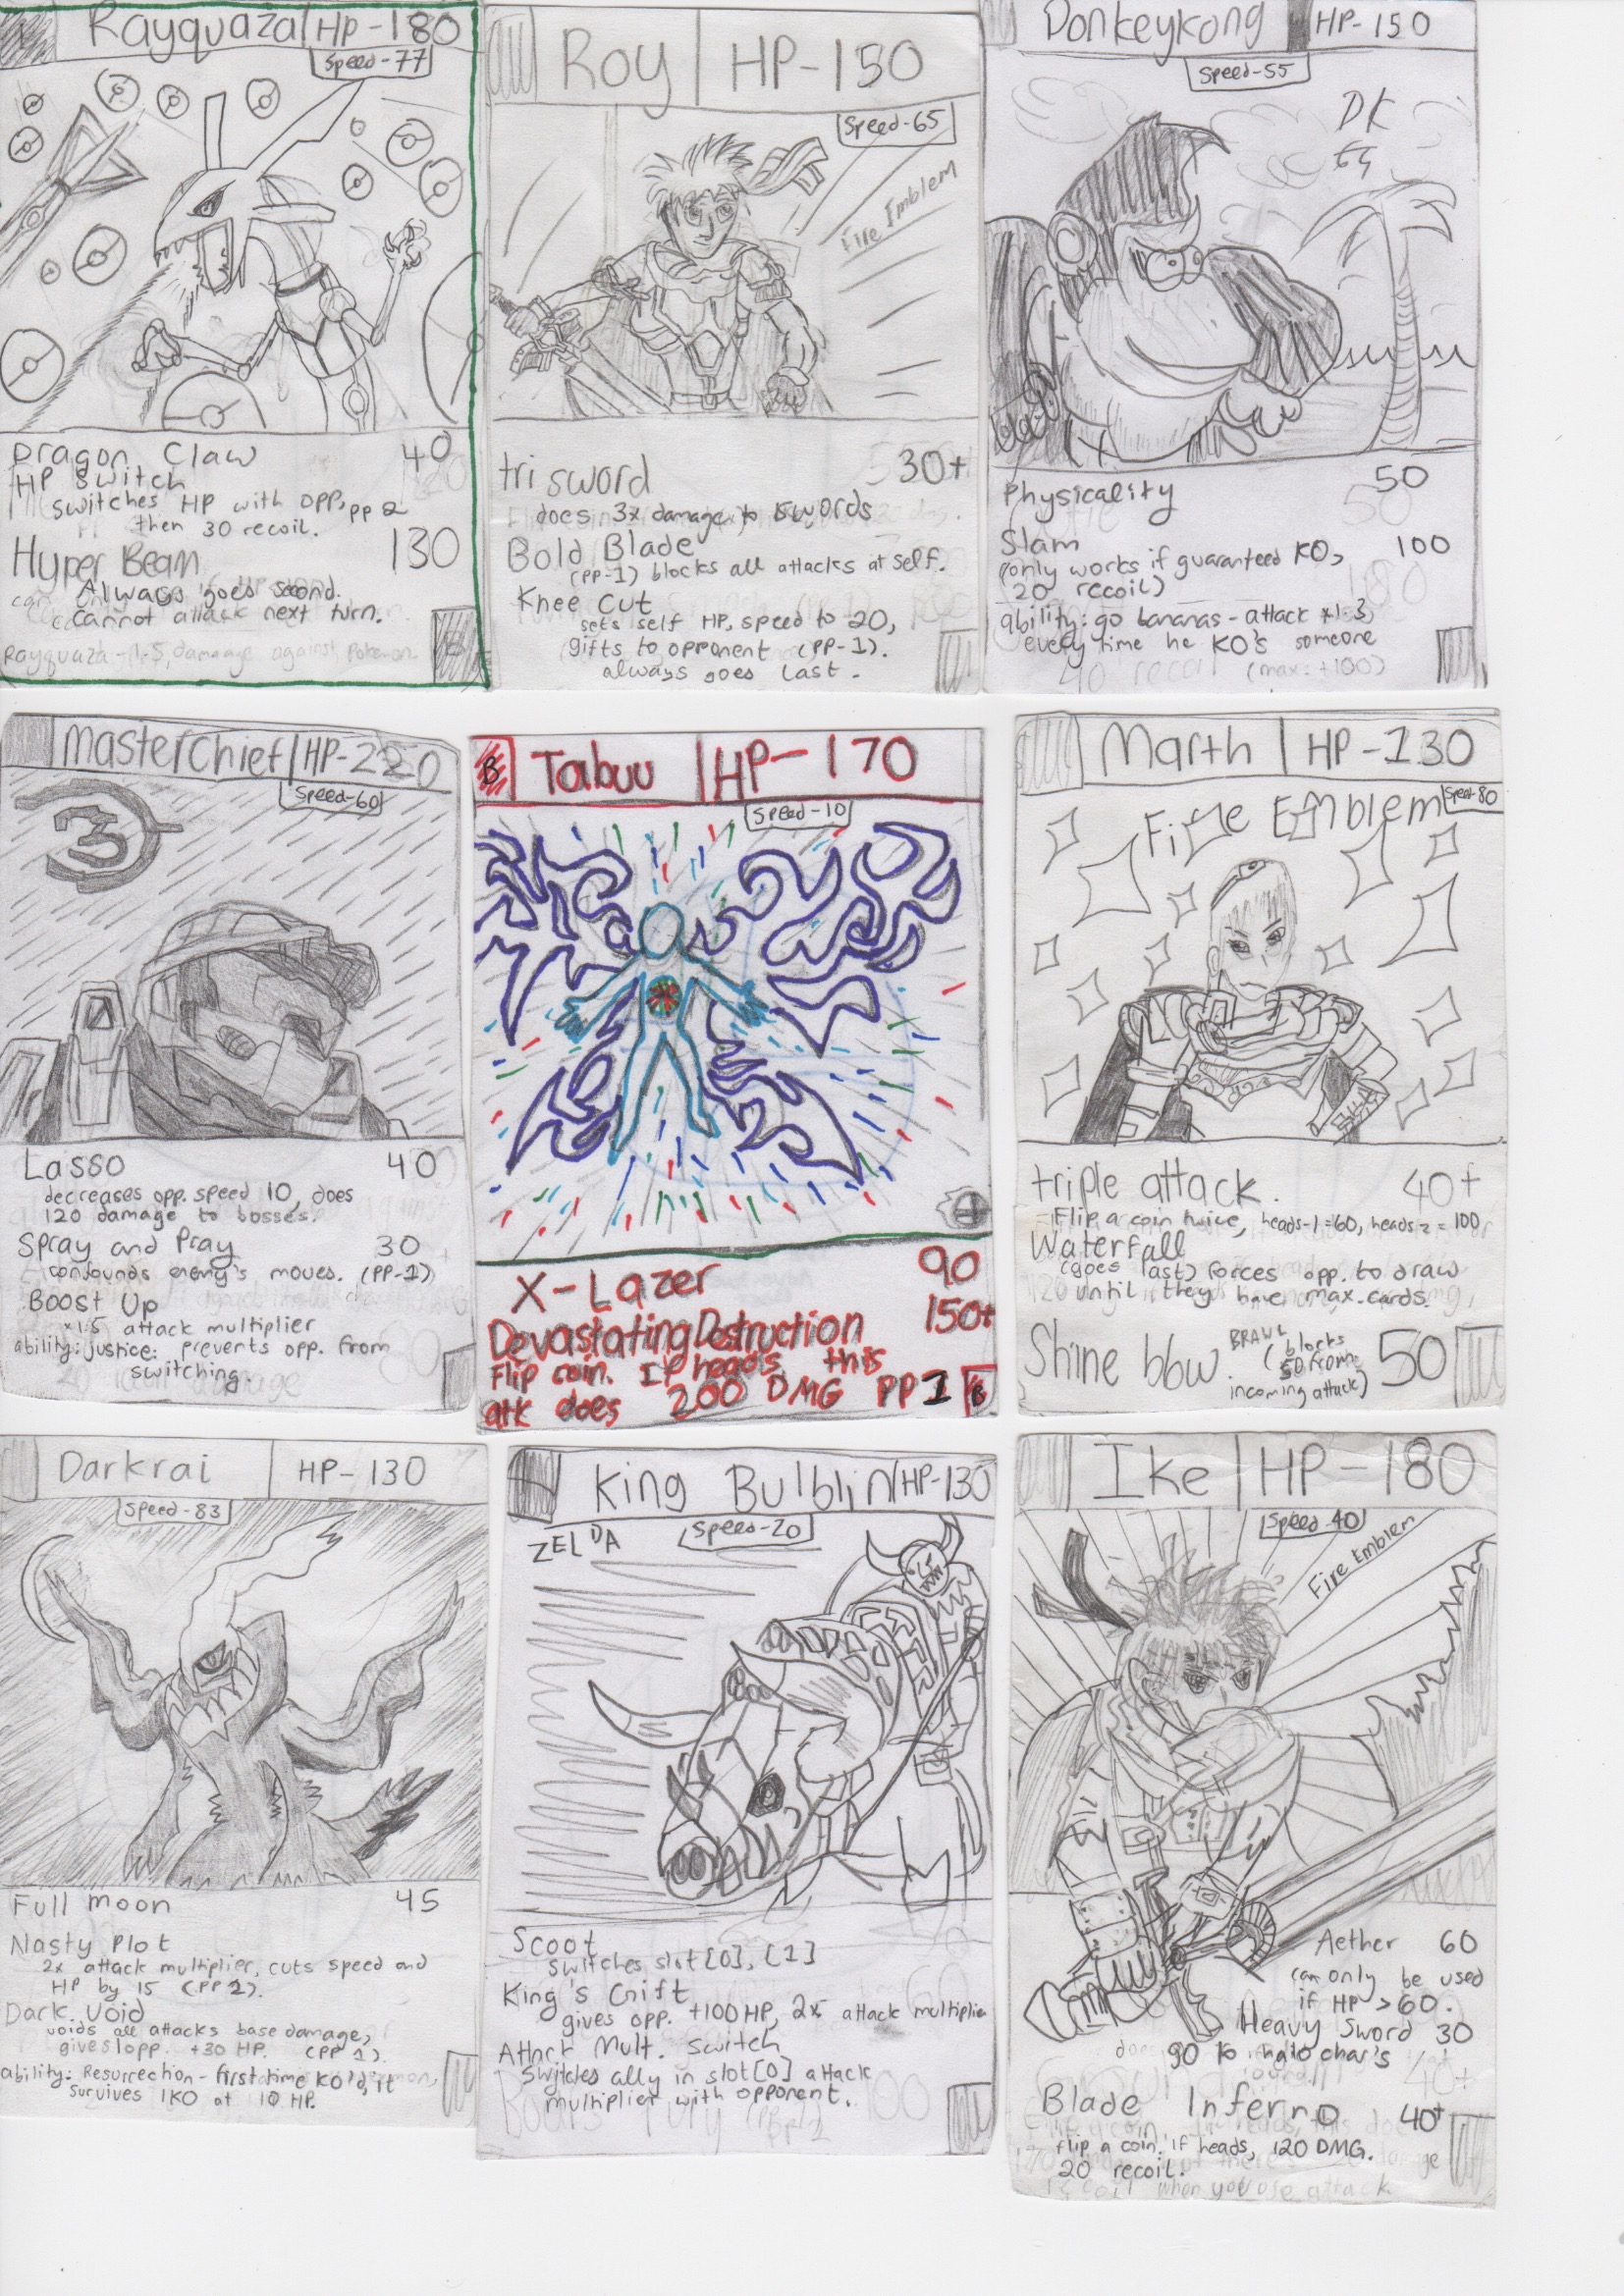 Rayquaza HP-180
Speed-77
Dragon Claw 40
HP Switch
switches HP with opp, pp 2
then 30 recoil.
Hyper Beam 130
Always goes second.
Cannot attack next turn.
Rayquaza - 1.5, damage against Pokemon
Roy HP-150
Speed-65
Fire Emblem
tri sword 30+
does 3x damage to swords
Bold Blade
(PP-1) blocks all attacks at self.
Knee cut
sets self HP, speed to 20,
gifts to opponent (PP-1).
always goes last.
Donkeykong HP-150
Speed-55
DK
64
Physicality 50
Slam 100
(only works if guaranteed KO,
20 recoil)
ability: go bananas - attack x1.3
every time he KO's someone
(max: +100)
Masterchief HP-220
Speed-60
3
Lasso 40
decreases opp. speed 10, does
120 damage to bosses.
Spray and Pray 30
confounds enemy's moves. (PP-1)
Boost Up
x1.5 attack multiplier
ability: justice: prevents opp. from
switching.
B Tabuu HP-170
Speed-10
X-Lazer 90
Devastating Destruction 150+
Flip coin. If heads this
atk does 200 DMG PP 1 B
Marth HP-130
Speed-80
Fire Emblem
triple attack. 40+
Flip a coin twice, heads-1=60, heads-2=100
Waterfall
(goes last) forces opp. to draw
until they have max. cards.
Shine blow 50
BRAWL
(blocks
50 from
incoming attack)
Darkrai HP-130
Speed-83
Full moon 45
Nasty Plot
2x attack multiplier, cuts speed and
HP by 15 (PP 2).
Dark Void
voids all attacks base damage,
gives opp. +30 HP. (PP 1).
ability: Resurrection - first time KO'd, it
survives 1KO at 10 HP.
King Bulblin HP-130
ZELDA
Speed-20
Scoot
switches slot [0], [1]
King's Gift
gives opp. +100 HP, 2x attack multiplier
Attack Mult. Switch
Switches ally in slot [0] attack
multiplier with opponent.
Ike HP-180
Speed-40
Fire Emblem
Aether 60
can only be used
if HP >60.
Heavy Sword 30
90 to halo char's
Blade Inferno 40+
flip a coin. if heads, 120 DMG.
20 recoil.